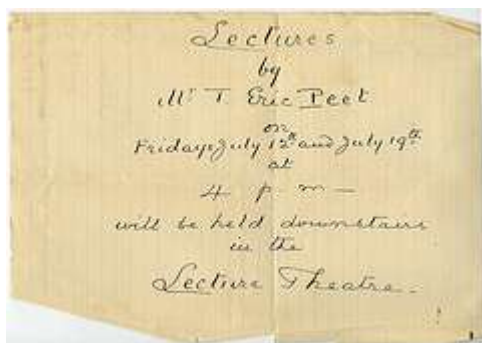 Lectures
by
Mr T. Eric Peet
on
Fridays July 12th and July 19th
at
4 p.m—
will be held downstairs
in the
Lecture Theatre.